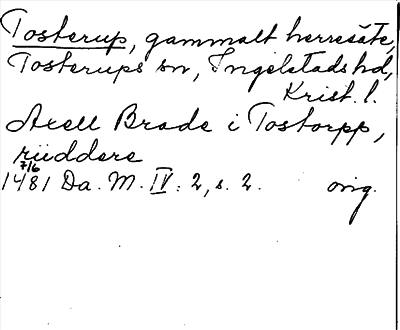 Tosterup, gammalt herresäte,
Tosterups sn, Ingelstads hd,
Krist. l.
Axell Brade i Tostorpp,
riddere
7/6
1481 Da. M. IV: 2, s. 2. orig.